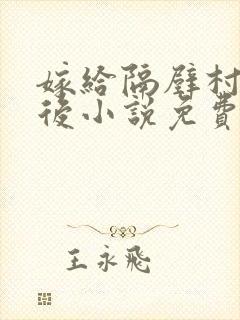 嫁给隔壁村
後小说免費
王永飛